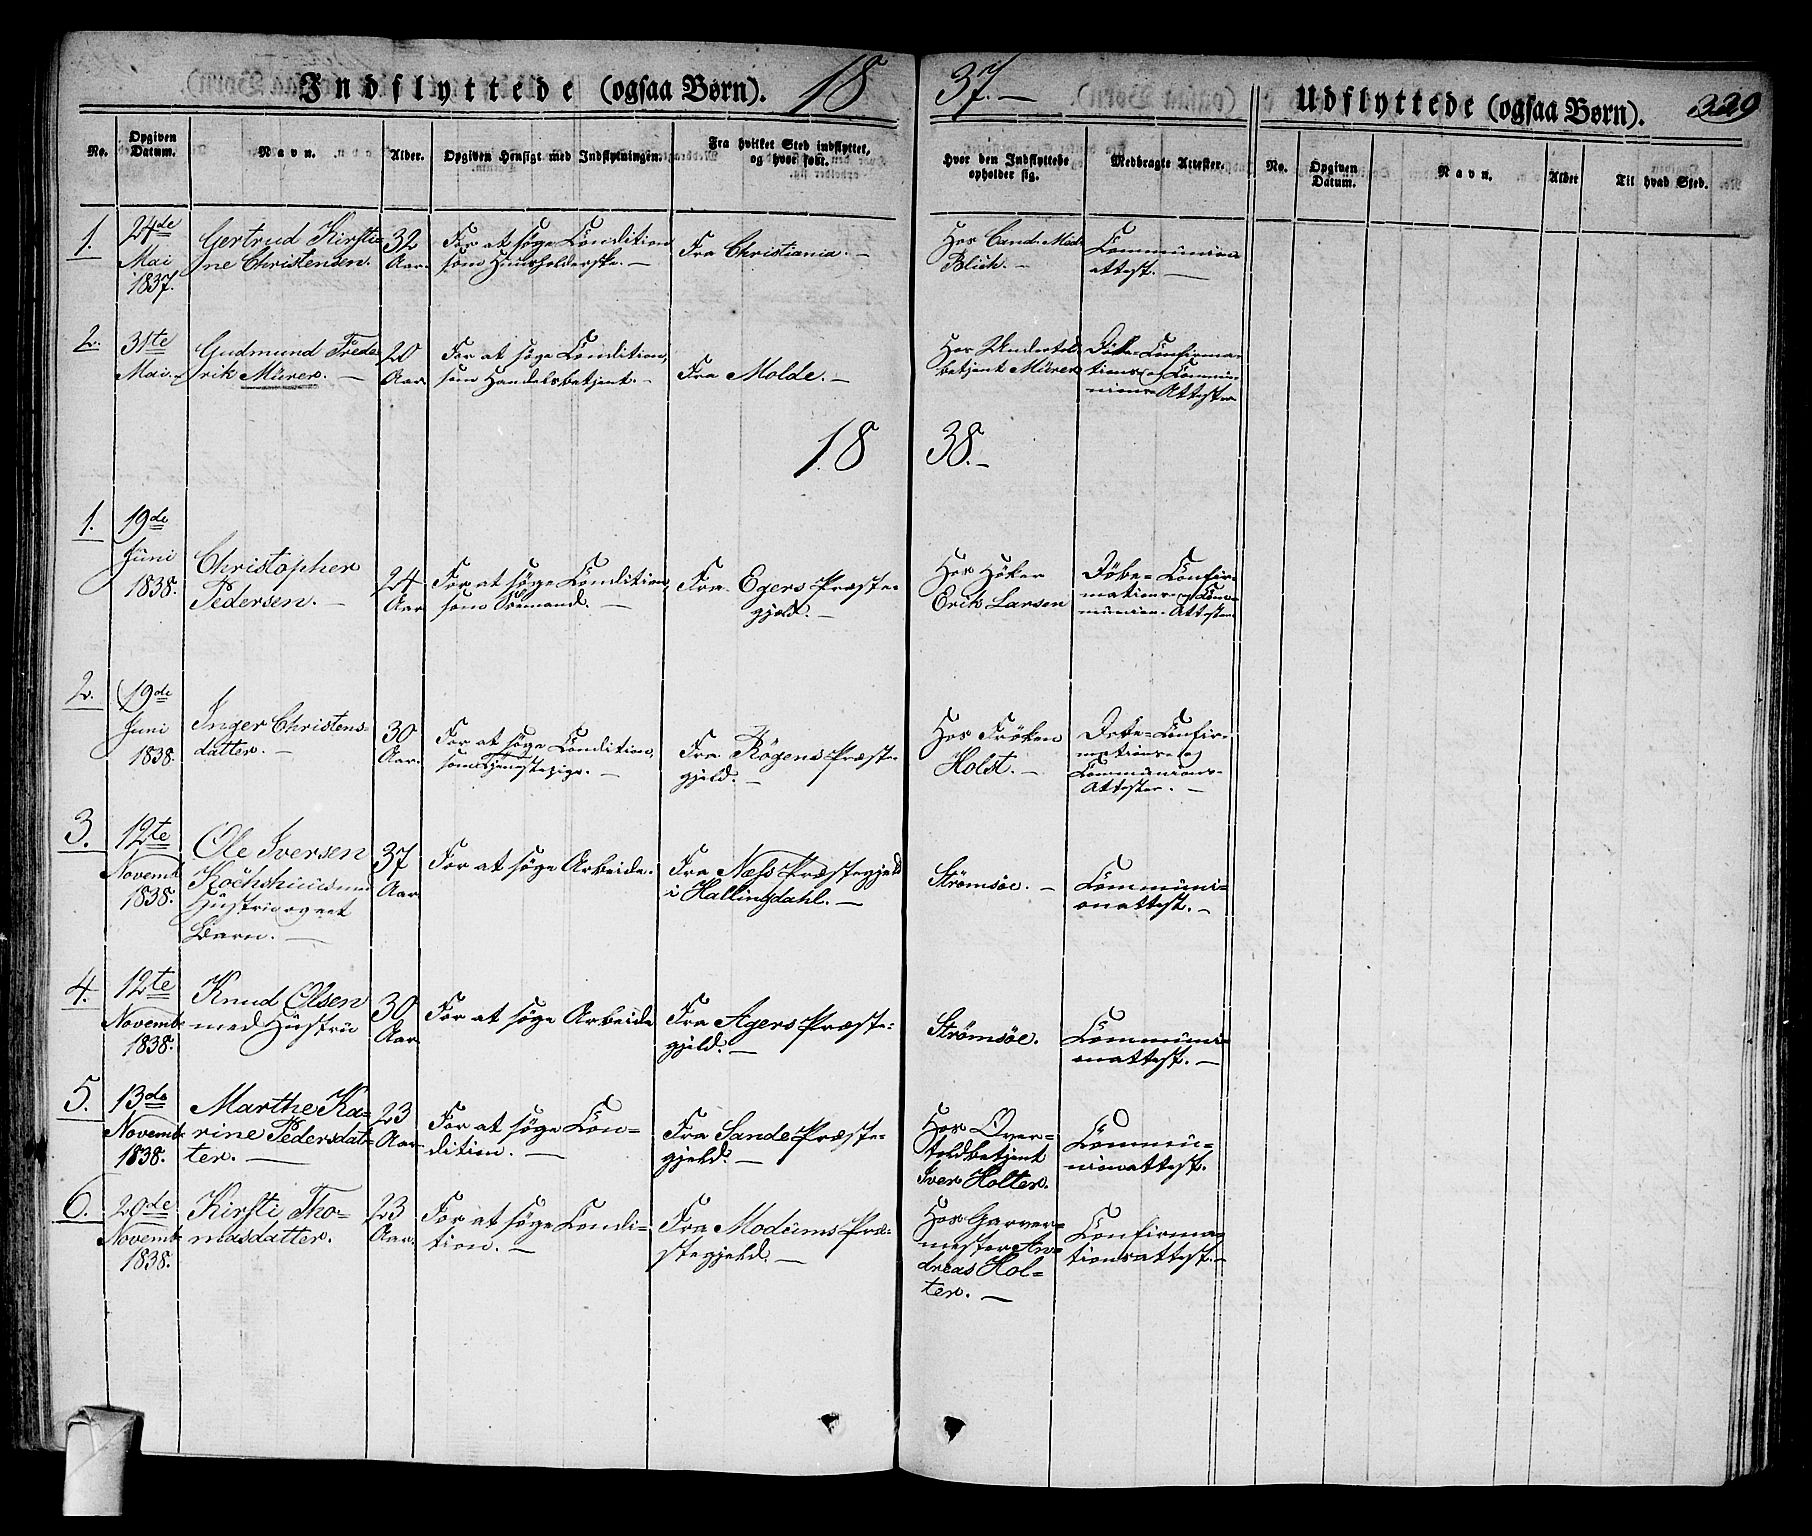 Indflyttede (ogsaa Børn). 18 37.—
Udflyttede (ogsaa Børn). 329
No.
Opgiven Datum.
Navn.
Alder.
Opgiven Hensigt med Indflytningen.
Fra hvilket Sted indflyttet, og hvor født.
Hvor den Indflyttede opholder sig.
Medbragte Attester.
No.
Opgiven Datum.
Navn.
Alder
Til hvad Sted.
1.
24de
Mai
1837.
Gertrud Kirsti-
ne Christensen.
32
Aar.
For at søge Condition
som Huusholderske.—
Fra Christiania.—
Hos Cand. Med.
Blich.—
Communions
attest.—
2.
31te
Mai.
Gudmund Frede
rik Mürer.—
20
Aar
For at søge Condition,
som Handelsbetjent.—
Fra Molde.—
Hos Undertold
betjent Mürer
Döbe- Confirma-
tions- og Commu-
nions- Attester
18 38.—
1.
19de
Juni
1838.
Christopher
Pedersen.—
24
Aar
For at søge Condition,
som Sömand.—
Fra Egers Præste-
gjeld.—
Hos Höker
Erik Larsen
Döbe- Confir-
mations- og Com-
munions- Attester
2.
19de
Juni
1838.
Inger Christens-
datter.—
30
Aar.
For at søge Condition,
som Tjenestepige.—
Fra Røgens Præste-
gjeld.—
Hos Fröken
Holst.—
Döbe- Confir-
mations- og
Communions-
Attester.—
3.
12te
Novemb.
1838.
Ole Iversen
Kochshuus med
Hustrue og eet
Barn.—
37
Aar
For at søge Arbeide.
Fra Næss Præstegjeld
i Hallingdahl.—
Strömsöe.—
Communi-
onattest.—
4.
12te
Novemb.
1838.
Knud Olsen
med Hustru
30
Aar.
For at søge Arbeide
Fra Agers Præste-
gjeld.—
Strömsöe.
Communi-
onattest.—
5.
13de
Novemb.
1838.
Marthe Ka-
rine Pedersdat-
ter.—
23
Aar
For at søge Con-
dition.—
Fra Sande Præste-
gjeld.—
Hos Over-
toldbetjent
Iver Holter.
Commu-
nionattest.
6.
20de
Novemb.
1838.
Kirsti Tho-
masdatter.
23
Aar.
For at søge Condi-
tion.—
Fra Modums Præ-
stegjeld.—
Hos Garver-
mester An-
dreas Hol-
ter.—
Confirma-
tionsattest.—